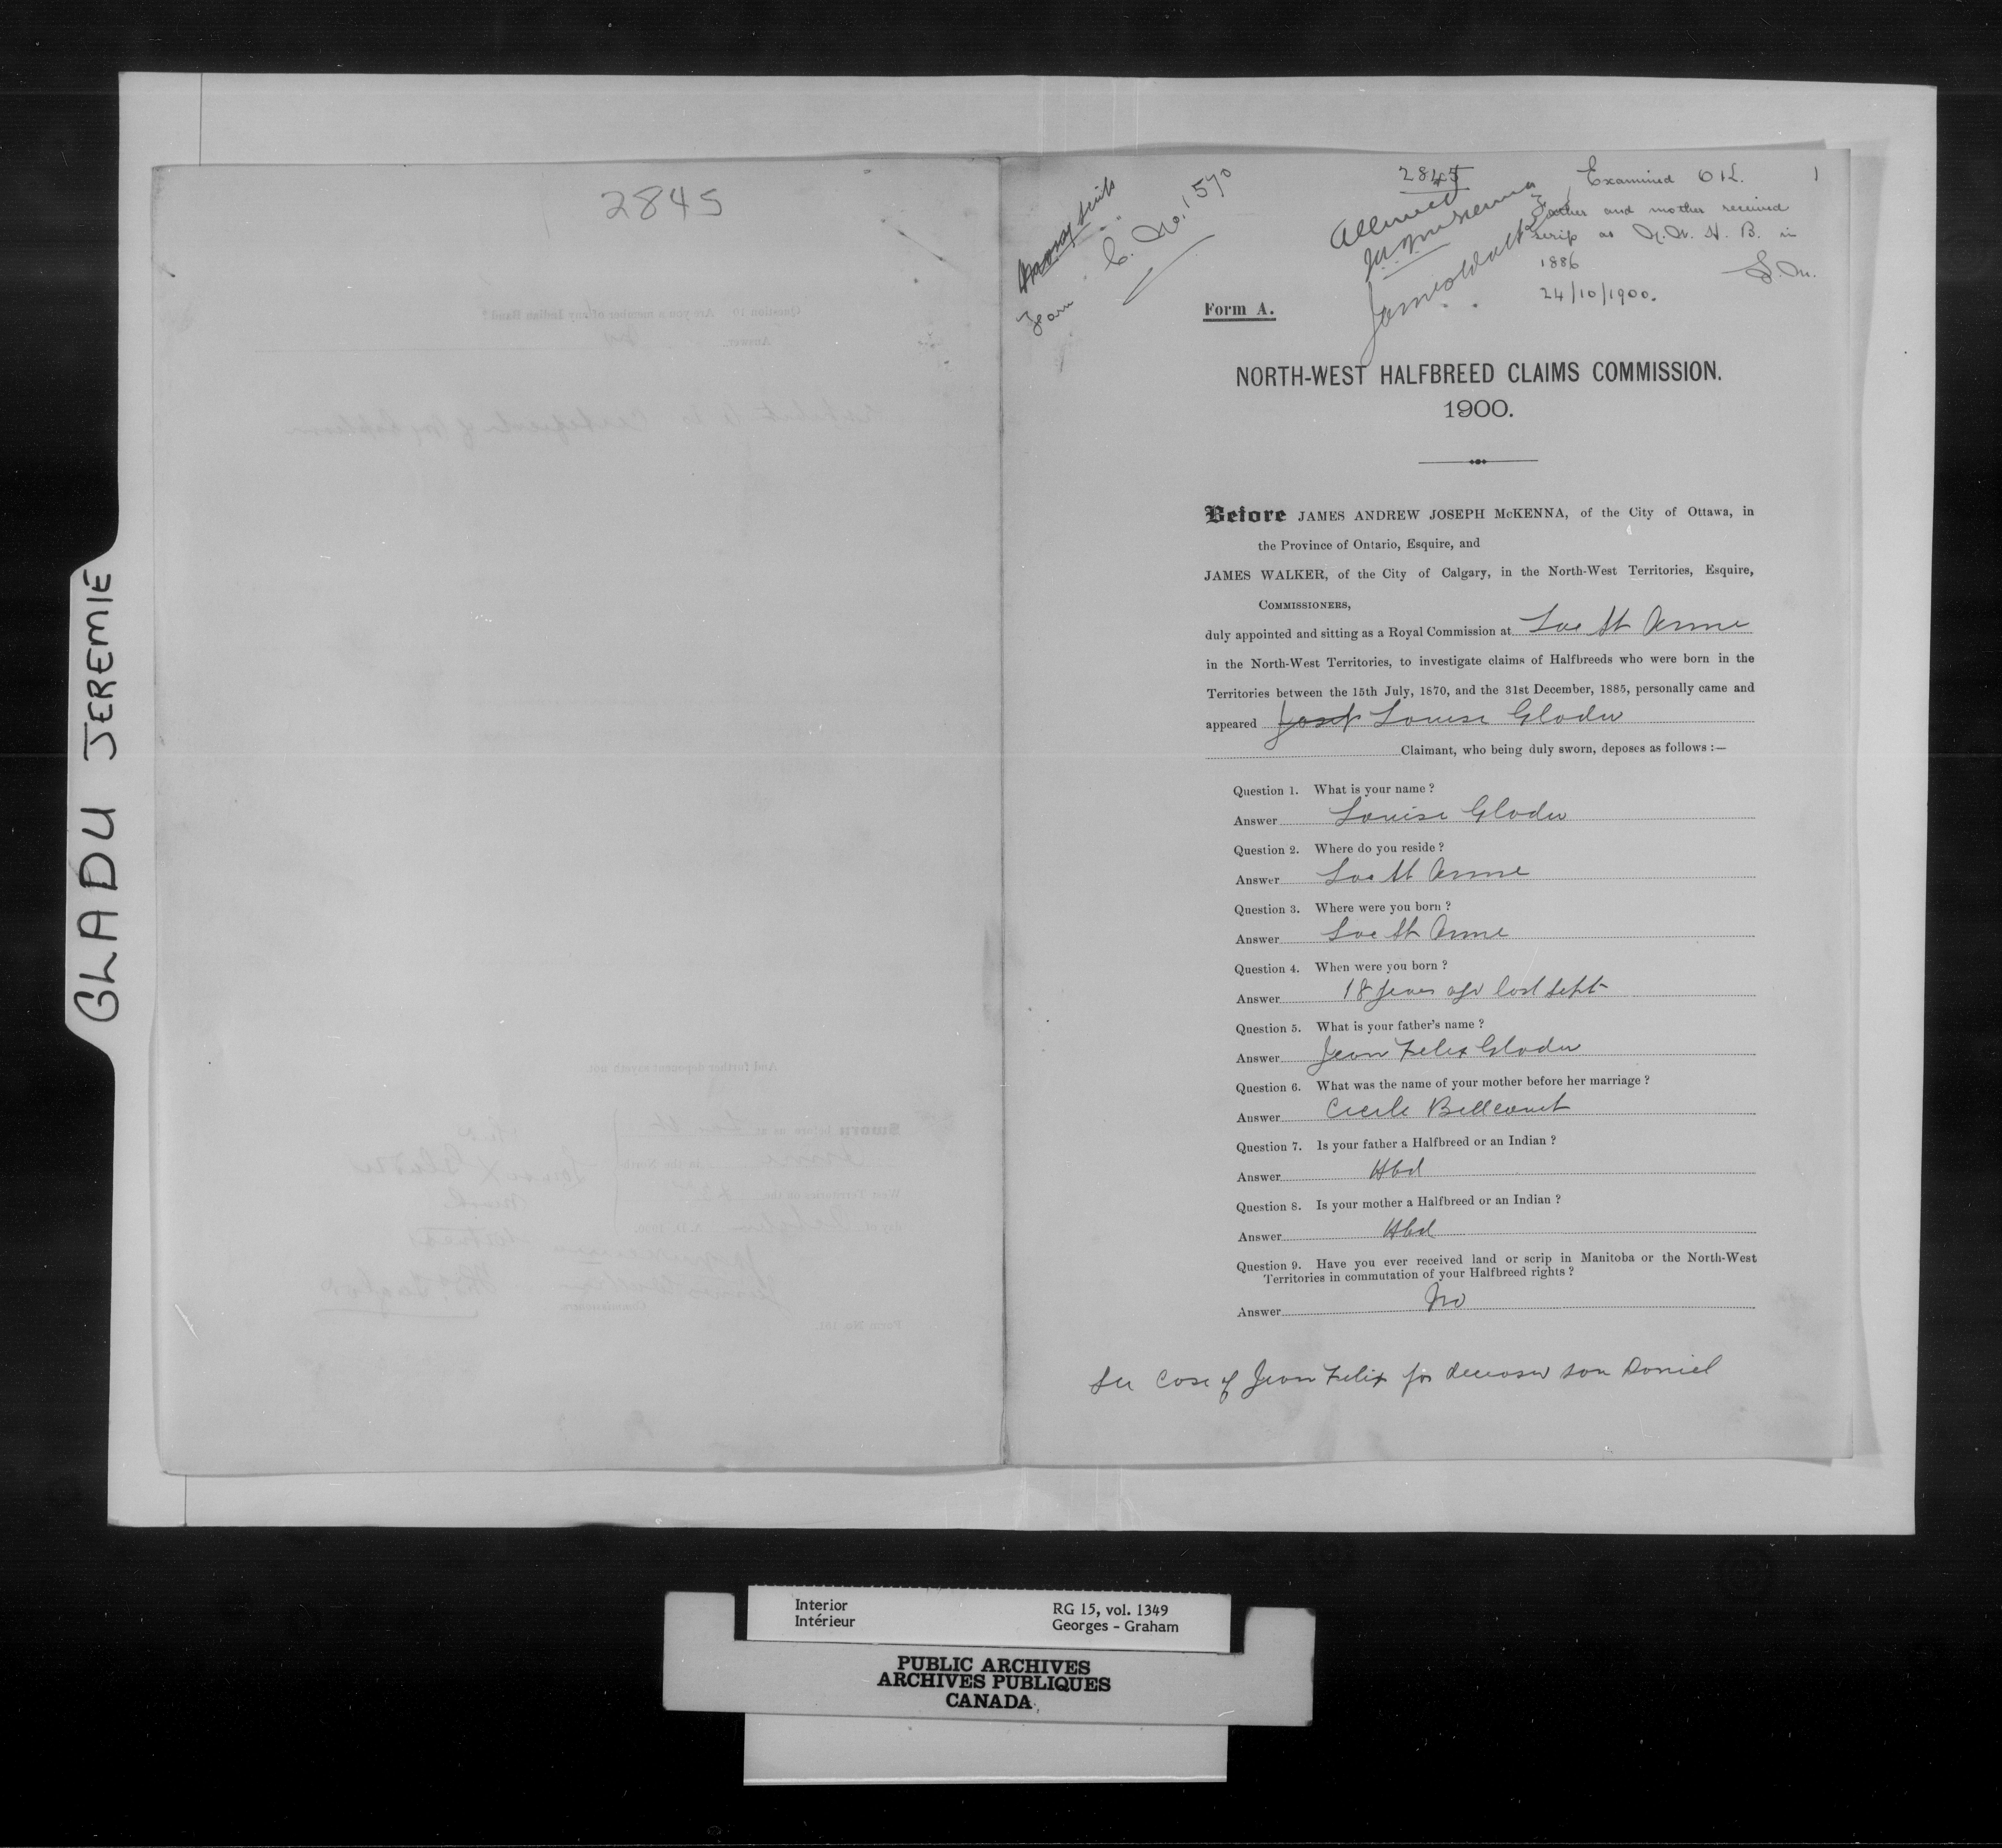 GLADU JEREMIE
2845
Money Scrip
Form C. No. 1570
2845
Allowed
JAJ McKenna
James Walker
Examined
1
Father and mother received
scrip as N.W. H. B. in
1886
24/10/1900.
Form A.
NORTH-WEST HALFBREED CLAIMS COMMISSION.
1900.
Before JAMES ANDREW JOSEPH McKENNA, of the City of Ottawa, in
the Province of Ontario, Esquire, and
JAMES WALKER, of the City of Calgary, in the North-West Territories, Esquire,
COMMISSIONERS,
duly appointed and sitting as a Royal Commission at Lac St Anne
in the North-West Territories, to investigate claims of Halfbreeds who were born in the
Territories between the 15th July, 1870, and the 31st December, 1885, personally came and
appeared Louise Gladu
Claimant, who being duly sworn, deposes as follows :—
Question 1. What is your name ?
Answer Louise Gladu
Question 2. Where do you reside ?
Answer Lac St Anne
Question 3. Where were you born ?
Answer Lac St Anne
Question 4. When were you born ?
Answer 18 years ago last Sept
Question 5. What is your father's name ?
Answer Jean Felix Gladu
Question 6. What was the name of your mother before her marriage ?
Answer Cecile Bellcourt
Question 7. Is your father a Halfbreed or an Indian ?
Answer Hbd
Question 8. Is your mother a Halfbreed or an Indian ?
Answer Hbd
Question 9. Have you ever received land or scrip in Manitoba or the North-West
Territories in commutation of your Halfbreed rights ?
Answer No
See case of Jean Felix for deceased son Daniel
Interior
Intérieur
RG 15, vol. 1349
Georges - Graham
PUBLIC ARCHIVES
ARCHIVES PUBLIQUES
CANADA